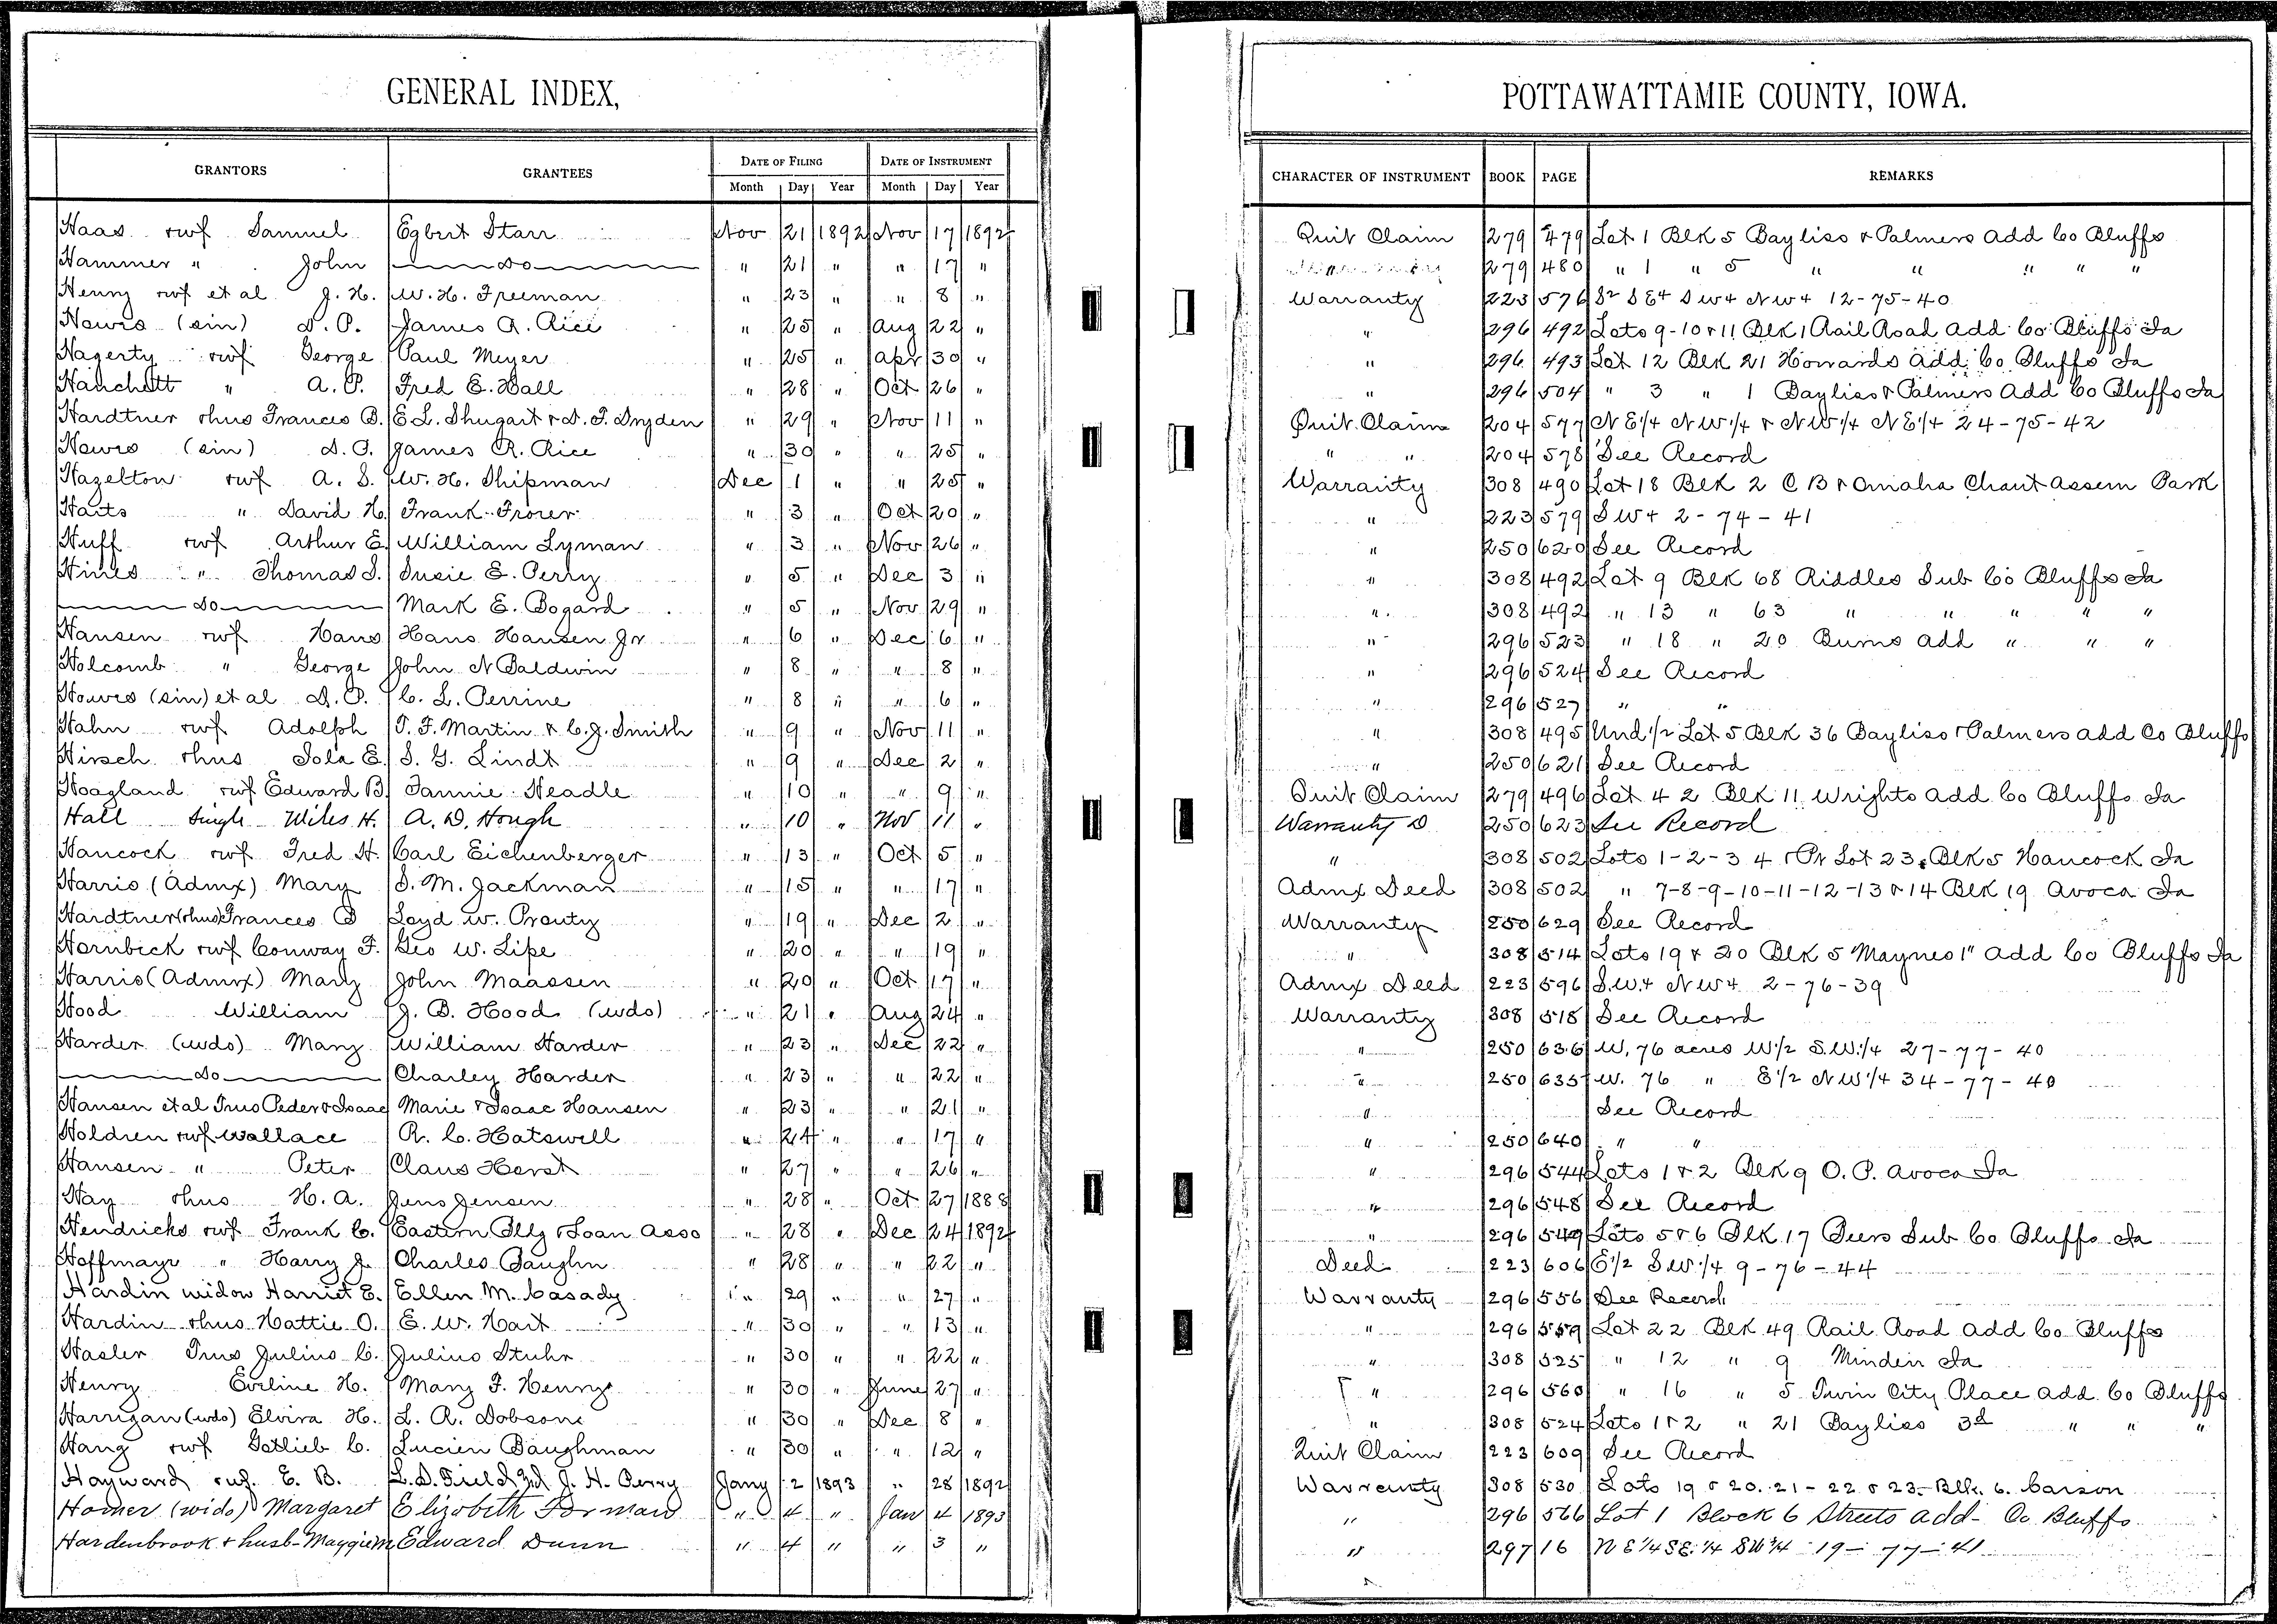 GENERAL INDEX,
GRANTORS GRANTEES DATE OF FILING DATE OF INSTRUMENT
Month Day Year Month Day Year
Haas rwf Samuel Egbert Starr Nov 21 1892 Nov 17 1892
Hammer " John do " 21 " " 17 "
Henry rwf et al J. H. W. H. Freeman " 23 " " 8 "
Hawes (sin) D. P. James R. Rice " 25 " Aug 22 "
Hagerty rwf George Paul Meyer " 25 " Apr 30 "
Hanchett " A. P. Fred E. Hall " 28 " Oct 26 "
Hardtner rhus Frances B. E L. Shugart & D. F. Dryden " 29 " Nov 11 "
Hawes (sin) D. P. James R. Rice " 30 " " 25 "
Hazelton rwf A. S. W. H. Shipman Dec 1 " " 25 "
Harts " David H. Frank Frorer " 3 " Oct 20 "
Huff rwf Arthur E. William Lyman " 3 " Nov 26 "
Hines " Thomas S. Susie E. Perry " 5 " Dec 3 "
do Mark E. Bogard " 5 " Nov 29 "
Hansen rwf Hans Hans Hansen Jr " 6 " Dec 6 "
Holcomb " George John N Baldwin " 8 " " 8 "
Hawes (sin) et al D. P. C. L. Perrine " 8 " " 6 "
Hahn rwf Adolph T. F. Martin & C. J. Smith " 9 " Nov 11 "
Hirsch rhus Iola E. S. G. Lindt " 9 " Dec 2 "
Hoagland rwf Edward B. Fannie Headle " 10 " " 9 "
Hall Single Miles H. A. D. Hough " 10 " Nov 11 "
Hancock rwf Fred H. Carl Eichenberger " 13 " Oct 5 "
Harris (Admx) Mary S. M. Jackman " 15 " " 17 "
Hardtner (rhus) Frances B Loyd W. Prouty " 19 " Dec 2 "
Hornbeck rwf Conway F. Geo W. Lipe " 20 " " 19 "
Harris (Admx) Mary John Maassen " 20 " Oct 17 "
Hood William J. B. Hood (wdo) " 21 " Aug 24 "
Harder (wdo) Mary William Harder " 23 " Dec 22 "
do Charley Harder " 23 " " 22 "
Hansen et al Trus Peder & Isaac Marie & Isaac Hansen " 23 " " 21 "
Holdren rwf Wallace R. C. Hatswell " 24 " " 17 "
Hansen " Peter Claus Horst " 27 " " 26 "
Hay rhus H. A. Jens Jensen " 28 " Oct 27 1888
Hendricks rwf Frank C. Eastern Bldg & Loan Asso " 28 " Dec 24 1892
Hoffmayr " Harry J. Charles Baughn " 28 " " 22 "
Hardin widow Harriet E. Ellen M. Casady " 29 " " 27 "
Hardin rhus Hattie O. E. W. Hart " 30 " " 13 "
Hasler Trus Julius C. Julius Stuhr " 30 " " 22 "
Henry Eveline H. Mary F. Henry " 30 " June 27 "
Harrigan (wdo) Elvira H. L. R. Dobson " 30 " Dec 8 "
Hang rwf Gotlieb C. Lucien Baughman " 30 " " 12 "
Hayward rwf. E. B. L. D. Field J. H. Perry Jany 2 1893 " 28 1892
Homer (wido) Margaret Elizabeth Forman " 4 " Jan 4 1893
Hardenbrook & husb- Maggie M Edward Dunn " 4 " " 3 "
POTTAWATTAMIE COUNTY, IOWA.
CHARACTER OF INSTRUMENT BOOK PAGE REMARKS
Quit Claim 279 479 Lot 1 Blk 5 Bayliss & Palmers Add Co Bluffs
279 480 " 1 " 5 " " " " "
Warranty 223 576 S2 SE4 SW4 NW4 12-75-40
" 296 492 Lots 9-10 & 11 Blk 1 Rail Road Add Co Bluffs Ia
" 296 493 Lot 12 Blk 21 Howards Add Co Bluffs Ia
" 296 504 " 3 " 1 Bayliss & Palmers Add Co Bluffs Ia
Quit Claim 204 577 N E1/4 N W1/4 & N W1/4 N E1/4 24-75-42
" " 204 578 See Record
Warranty 308 490 Lot 18 Blk 2 C B & Omaha Chaut Assem Park
" 223 579 S W4 2-74-41
" 250 620 See Record
" 308 492 Lot 9 Blk 68 Riddles Sub Co Bluffs Ia
" 308 492 " 13 " 63 " " " " "
" 296 523 " 18 " 20 Burns Add " " "
" 296 524 See Record
" 296 527 " "
" 308 495 Und 1/2 Lot 5 Blk 36 Bayliss & Palmers Add Co Bluffs
" 250 621 See Record
Quit Claim 279 496 Lot 4 2 Blk 11 Wrights Add Co Bluffs Ia
Warranty D 250 623 See Record
" 308 502 Lots 1-2-3 4 & Pt Lot 23 Blk 5 Hancock Ia
Admx Deed 308 502 " 7-8-9-10-11-12-13 & 14 Blk 19 Avoca Ia
Warranty 250 629 See Record
" 308 514 Lots 19 & 20 Blk 5 Maynes 1" Add Co Bluffs Ia
Admx Deed 223 596 S.W4 N W4 2-76-39
Warranty 308 518 See Record
" 250 636 W. 76 acres W1/2 S.W.1/4 27-77-40
" 250 635 W. 76 " E1/2 N W1/4 34-77-40
" See Record
" 250 640 " "
" 296 544 Lots 1 & 2 Blk 9 O. P. Avoca Ia
" 296 548 See Record
" 296 549 Lots 5 & 6 Blk 17 Beers Sub Co Bluffs Ia
Deed 223 606 E1/2 S W 1/4 9-76-44
Warranty 296 556 See Record
" 296 559 Lot 22 Blk 49 Rail Road Add Co Bluffs
" 308 525 " 12 " 9 Minden Ia
" 296 560 " 16 " 5 Twin City Place Add Co Bluffs
" 308 524 Lots 1 & 2 " 21 Bayliss 3d " " "
Quit Claim 223 609 See Record
Warrenty 308 530 Lots 19 & 20. 21-22 & 23- Blk. 6. Carson
" 296 566 Lot 1 Block 6 Streets add- Co. Bluffs
" 297 16 N E 1/4 S E. 1/4 S W 1/4 19-77-41